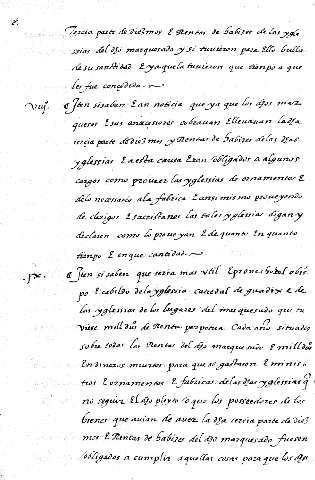 tercia parte de diezmos E Rentas de habizes de las ygle
sias del dho marquesado y si tuvieron para Ello bulla
de su santidad E ya que la tuvieron que tiempo a que
les fue concedida
viij. Iten si saben E an noticia que ya que los dhos mar
queses E sus antecesores cobravan E llevavan la dha
tercia parte de diezmos y Rentas de habizes de las dhas
yglesias E a esta causa Eran obligados a algunos
cargos como proveer las yglesias de ornamentos E
de lo necesario a la fabrica E ansimismo proveyendo
de clerigos E sacristanes las tales yglesias digan y
declaren como lo proveyan E de quanto En quanto
tiempo E en que cantidad
.jx. Iten si saben que seria mas util E provechoso al obis
po E cabildo de la yglesia catedral de guadix E de
las yglesias de los lugares del marquesado que tu
viese mill dus de Renta perpetua Cada año situados
sobre todas las Rentas del dho marquesado E mill dus
En dineros para que se gastasen E minis
tros E ornamentos E fabricas de las dhas yglesias q
no seguir El dho pleyto o que los posseedores de los
bienes que avian de aver la dha tercia parte de diez
mos E Rentas de habizes del dho marquesado fuesen
obligados a cumplir aquellas cosas para que los dhos